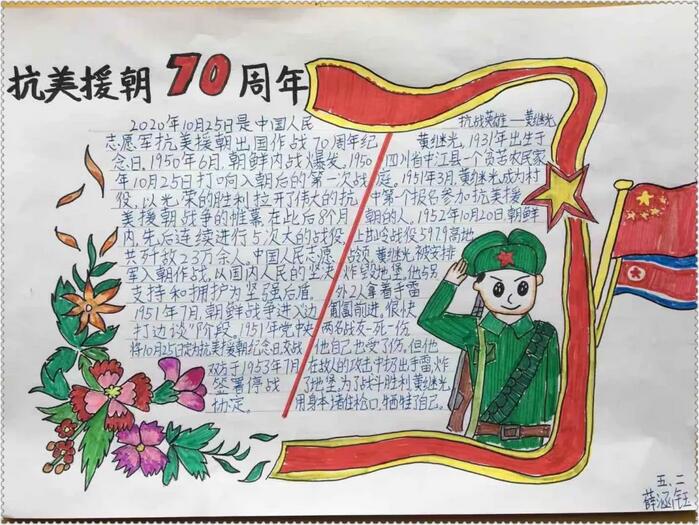 抗美援朝70周年
2020年10月25日是中国人民
志愿军抗美援朝出国作战70周年纪
念日。1950年6月朝鲜内战爆发。1950
年10月25日打响入朝后的第一次战
役。以光荣的胜利拉开了伟大的抗
美援朝战争的帷幕在此后8个月
内,先后连续进行5次大的战役,
共歼敌23万余人。中国人民志愿
军入朝作战,以国内人民的坚决
支持和拥护为坚强后盾。
1951年7月,朝鲜战争进入边
打边谈"阶段。1951年党中央
将10月25日定为抗美援朝纪念日交战
双方于1953年7月
签署停战
协定。
抗战英雄——黄继光
黄继光,1931年出生于
四川省中江县一个贫苦农民家
庭。1951年3月黄继光成为村
中第一个报名参加抗美援
朝的人。1952年10月20日朝鲜
上甘岭战役5979高地
战领黄继光被安排
炸毁地堡。他与另
外2人拿着手雷
匍匐前进。很快
两名战友一死一伤
他自己也受了伤。但他
在敌人的攻击中扔出手雷,炸
了地堡。为了战斗胜利黄继光
用身体堵住枪口,牺牲了自己。
五、二
薛涵钰